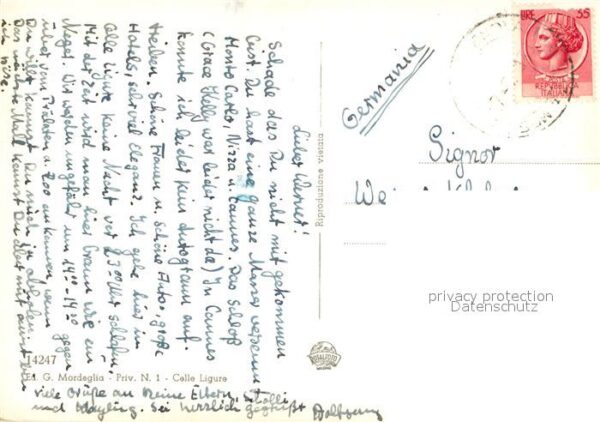 Lieber Werner!
Schade das Du nicht mit gekommen
bist. Du hast eine ganze Masse versäumt
Monto Carlo, Nizza u. Cannes. Das Schloß
(Grace Kelly war leider nicht da) In Cannes
konnte ich leider kein Autogramm auf-
treiben. Schöne Frauen u. schöne Autos, große
Hotels, sehr viel Eleganz. Ich gehe hier in
Celle Ligure keine Nacht vor 23⁰⁰ Uhr schlafen.
Mit der Zeit wird man hier braun wie ein
Neger. Wir werden ungefähr um 14⁰⁰-14³⁰
über vom Zoo ankommen, wenn
Du willst kannst Du mich ja abholen.
Das nächste Mal kannst Du aber mit
ich böse.
viele Grüße an Deine Eltern,
und Sei herzlich gegrüßt Wolfgang
14247
Ed. G. Mordeglia - Priv. N. 1 - Celle Ligure
Riproduzione vietata
Germania
LIRE 35
REPUBBLICA
ITALIANA
Signor
privacy protection
Datenschutz